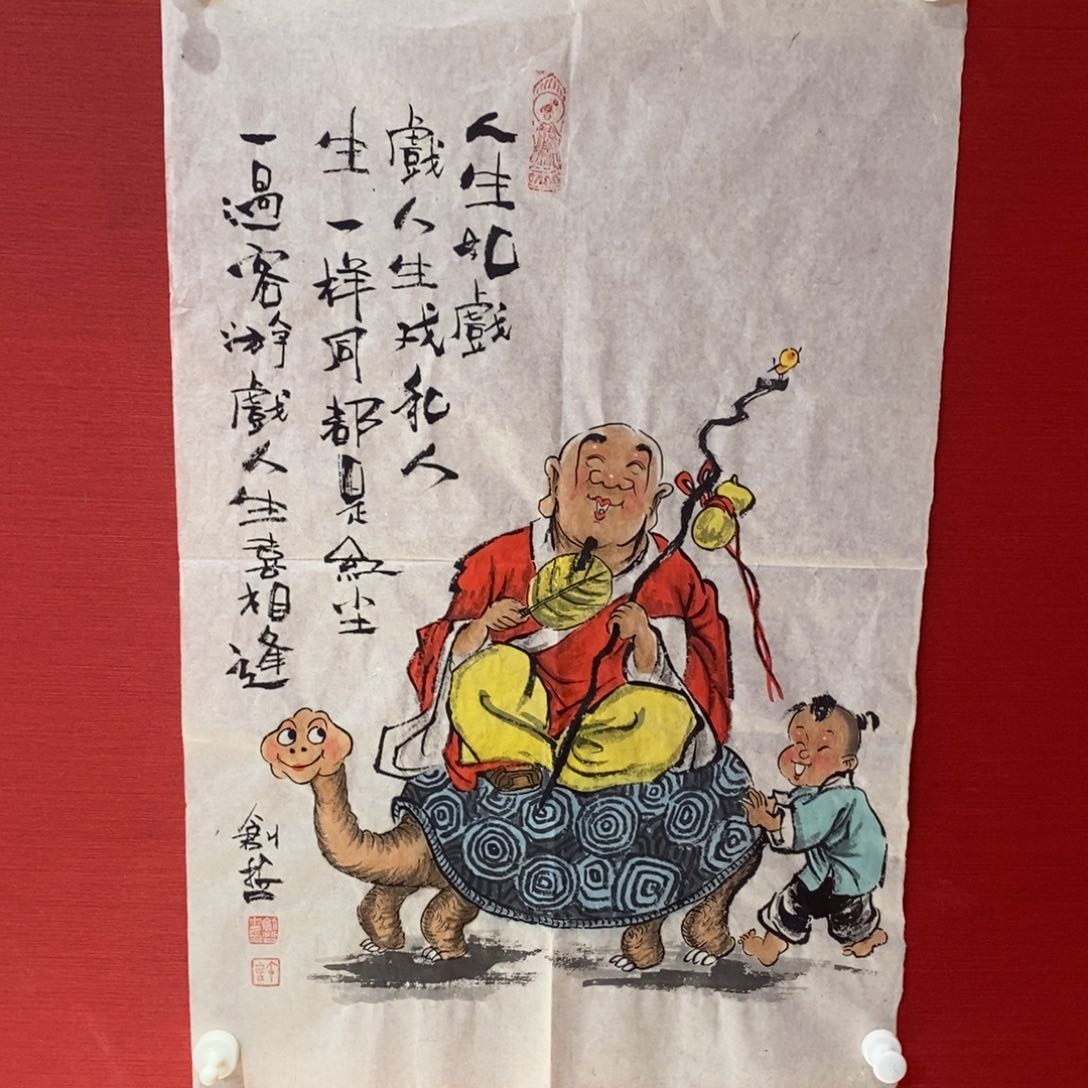 人生如戲
戲人生戏和人
生一样同都是紅尘
一過客游戲人生喜相逢
創哲